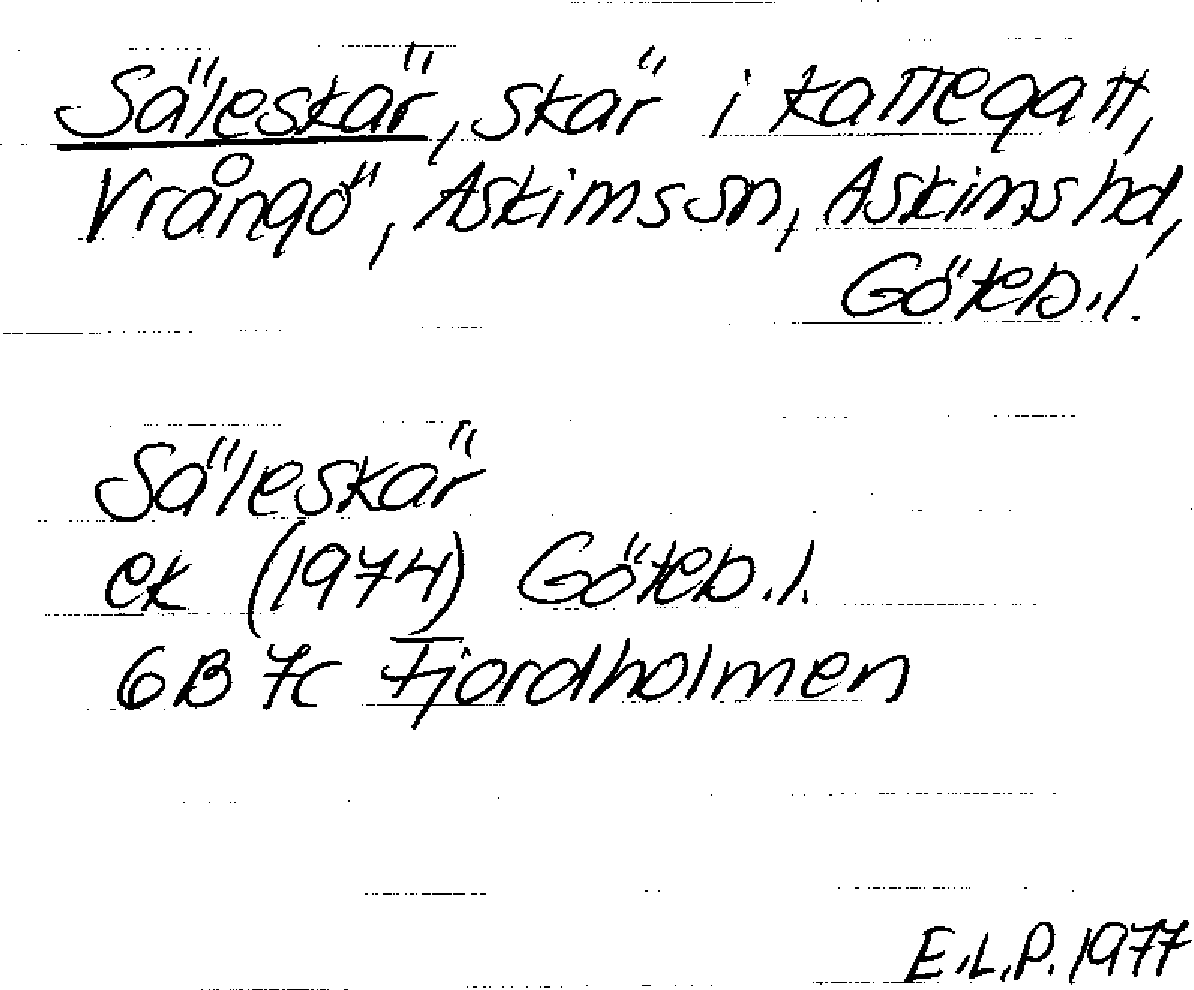 Säleskär, skär i Kattegatt,
Vrångö, Askims sn, Askims hd,
Göteb.l.
Säleskär
ek (1974) Göteb.l.
6B 7c Fjordholmen
E.L.P. 1977